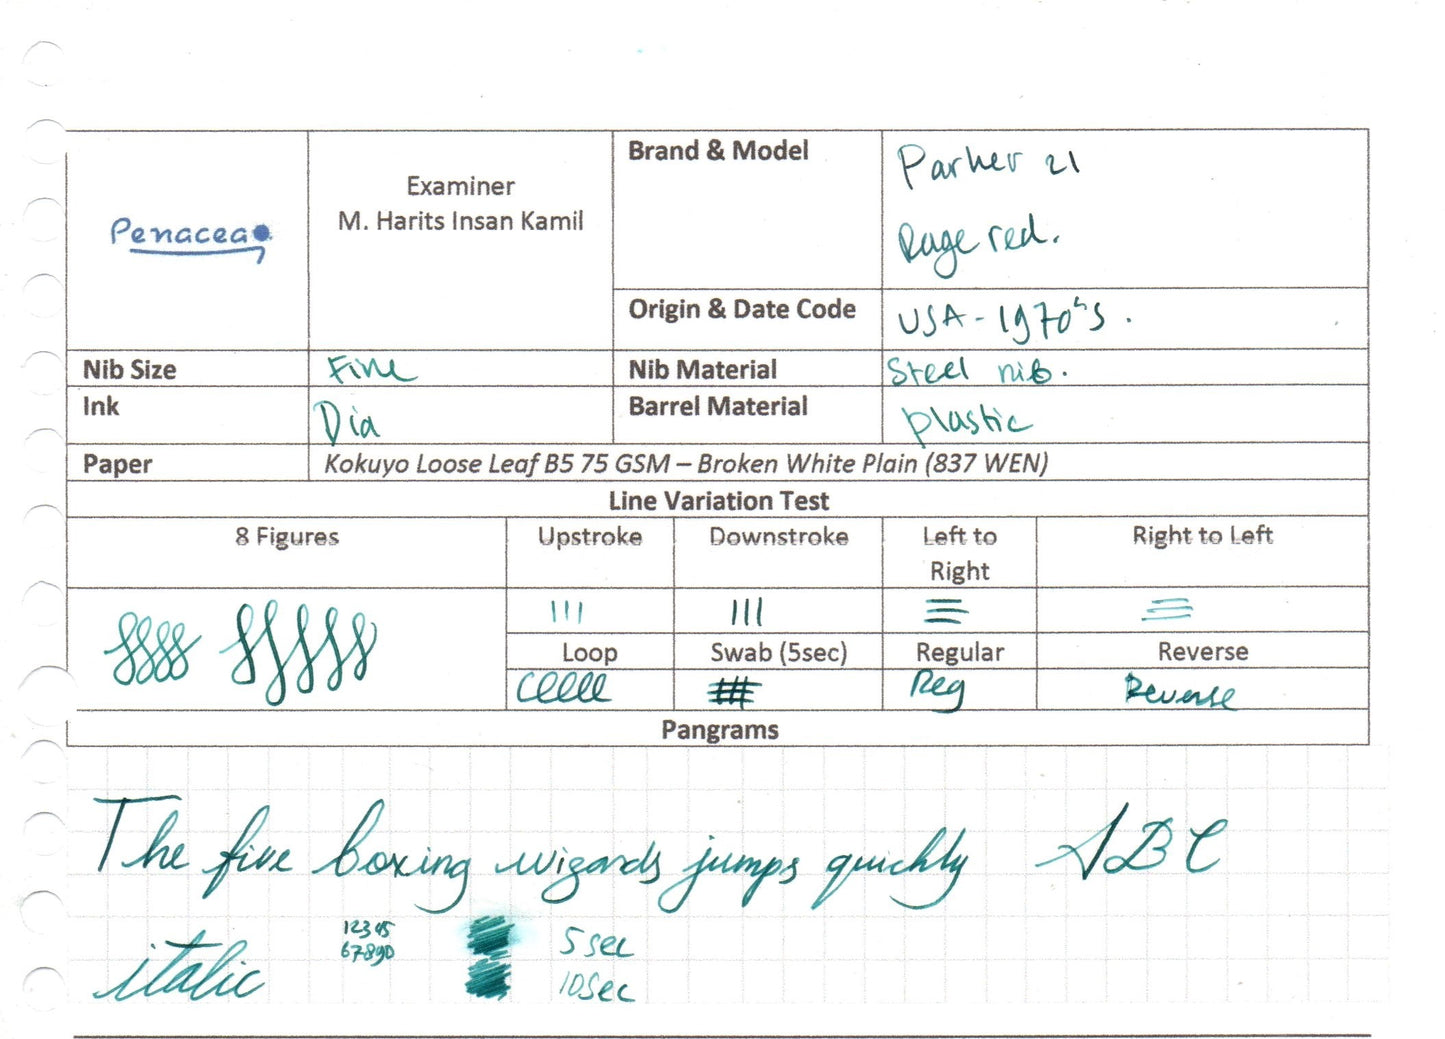 Penacea
Examiner
M. Harits Insan Kamil
Brand & Model
Parker 21
Rage red.
Origin & Date Code
USA - 1970's.
Nib Size
Fine
Nib Material
Steel nib.
Ink
Dia
Barrel Material
plastic
Paper
Kokuyo Loose Leaf B5 75 GSM – Broken White Plain (837 WEN)
Line Variation Test
8 Figures
Upstroke
Downstroke
Left to
Right
Right to Left
Loop
Swab (5sec)
Regular
Reverse
Reg
Reverse
Pangrams
The five boxing wizards jumps quickly ABC
12345
67890
5 sec
italic
10 sec